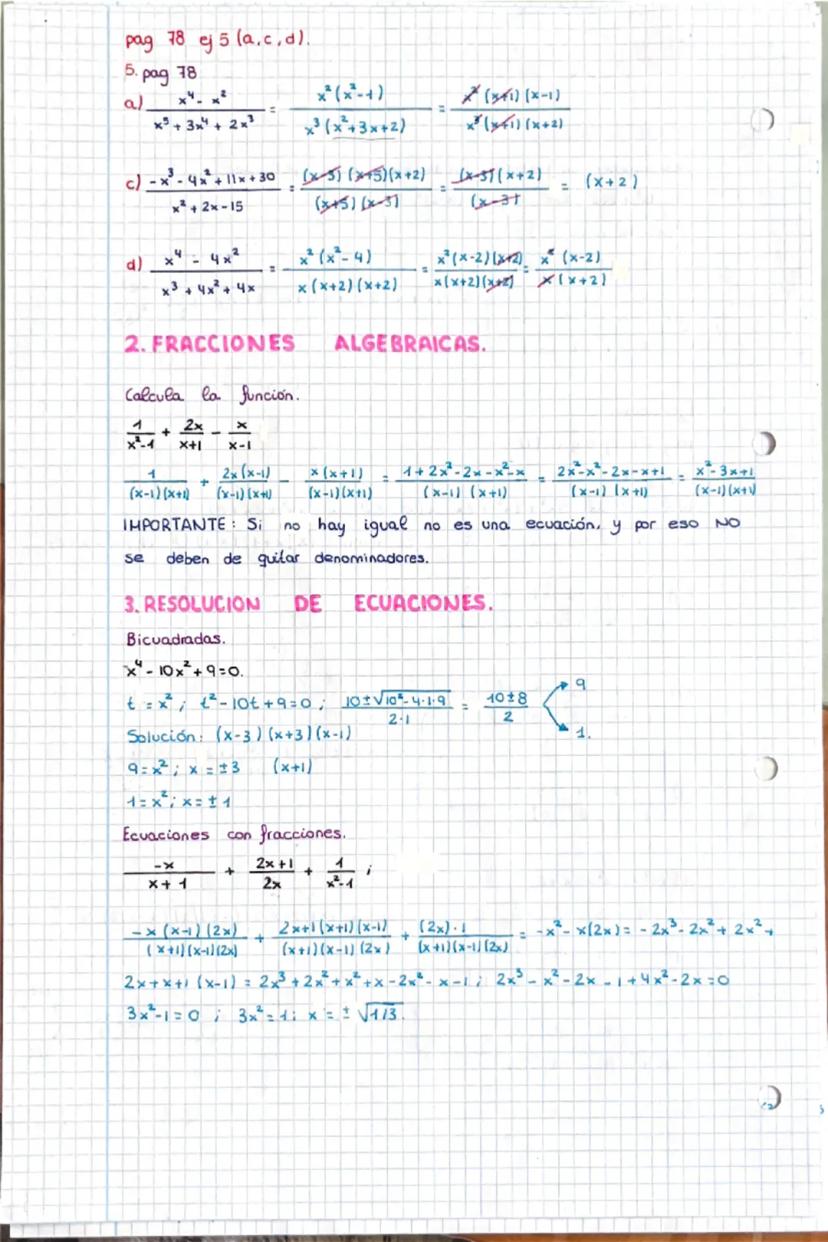 pag 78 ej 5 (a,c,d).
5. pag 78
a) x⁴ - x² / x⁵ + 3x⁴ + 2x³ = x²(x²-1) / x³(x²+3x+2) = x²(x+1)(x-1) / x³(x+1)(x+2)
c) -x³-4x²+11x+30 / x²+2x-15 = (x-3)(x+5)(x+2) / (x+5)(x-3) = (x-3)(x+2) / (x-3) = (x+2)
d) x⁴ - 4x² / x³+4x²+4x = x²(x²-4) / x(x+2)(x+2) = x²(x-2)(x+2) / x(x+2)(x+2) = x²(x-2) / x(x+2)
2. FRACCIONES ALGEBRAICAS.
Calcula la función.
1 / x²-1 + 2x / x+1 - x / x-1
1 / (x-1)(x+1) + 2x(x-1) / (x-1)(x+1) - x(x+1) / (x-1)(x+1) = 1+2x²-2x-x²-x / (x-1)(x+1) = 2x²-x²-2x-x+1 / (x-1)(x+1) = x²-3x+1 / (x-1)(x+1)
IMPORTANTE: Si no hay igual no es una ecuación, y por eso NO
se deben de quitar denominadores.
3. RESOLUCION DE ECUACIONES.
Bicuadradas.
x⁴-10x²+9=0.
t=x²; t²-10t+9=0; 10±√10²-4·1·9 / 2·1 = 10±8 / 2 9
1.
Solución: (x-3)(x+3)(x-1)
9=x²; x=±3 (x+1)
1=x²; x=±1
Ecuaciones con fracciones.
-x / x+1 + 2x+1 / 2x + 1 / x²-1 ;
-x(x-1)(2x) / (x+1)(x-1)(2x) + 2x+1(x+1)(x-1) / (x+1)(x-1)(2x) + (2x)·1 / (x+1)(x-1)(2x) = -x²-x(2x) = -2x³-2x²+2x²+
2x+x+1(x-1) = 2x³+2x²+x²+x-2x²-x-1; 2x³-x²-2x-1+4x²-2x=0
3x²-1=0; 3x²=1; x=±√1/3.